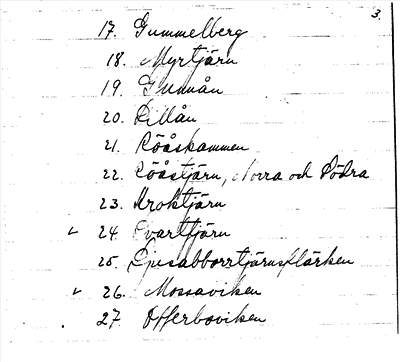 3.
17. Gummelberg
18. Myrtjärn
19. Gunnån
20. Lillån
21. Rööskammen
22. Rööstjärn, Norra och Södra
23. Kroktjärn
✓ 24. Svarttjärn
25. Ljusabborrtjärnsflärken
✓ 26. Mossaviken
27. Offerboviken